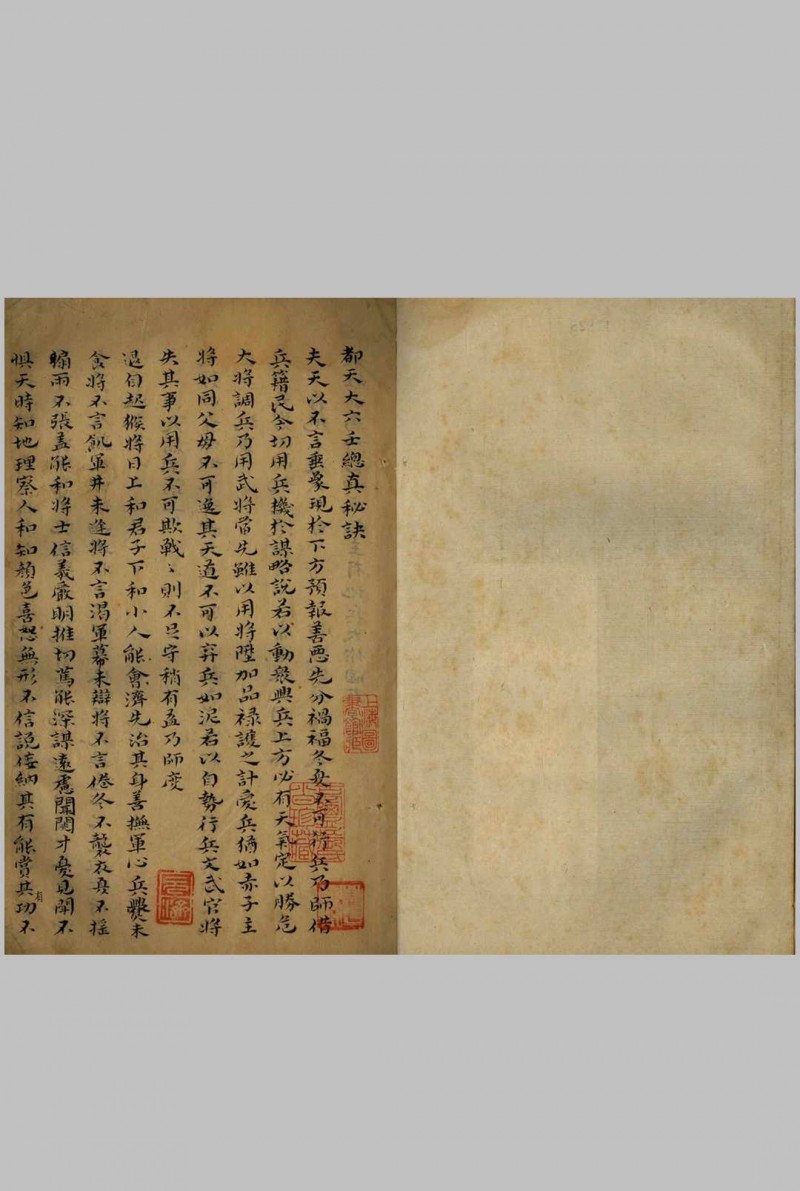 都天大六壬總真秘訣
夫天以不言垂象現於下方預報善惡先分禍福冬夏不可行兵乃師借
兵籍民令切用兵機於謀略説若以動衆興兵上方必有天氣定以勝危
大將調兵乃用武將當先雖以用將陞加品禄護之計愛兵猶如赤子主
將如同父母不可逸其天道不可以弃兵如泥若以自勢行兵文武官將
失其事以用兵不可欺戰〻則不足守稍有孟乃師度
退自起猴將日上和君子下和小人能會濟先治其身善撫軍心兵爨未
食將不言飢軍井未逢將不言渴軍幕未辯將不言倦冬不襲衣夏不搖
扇雨不張盖能和將士信義嚴明推切篤能深謀遠慮聞閗才憂見閗不
惧天時知地理察人和知顔色喜怒無形不信説佞納其有能賞其有功不
上海圖
書館藏